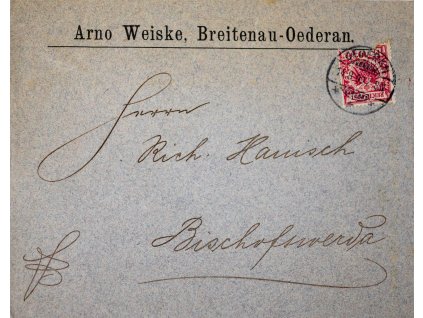 Arno Weiske, Breitenau-Oederan.
Herrn
Rich. Hanisch
Bischofswerda